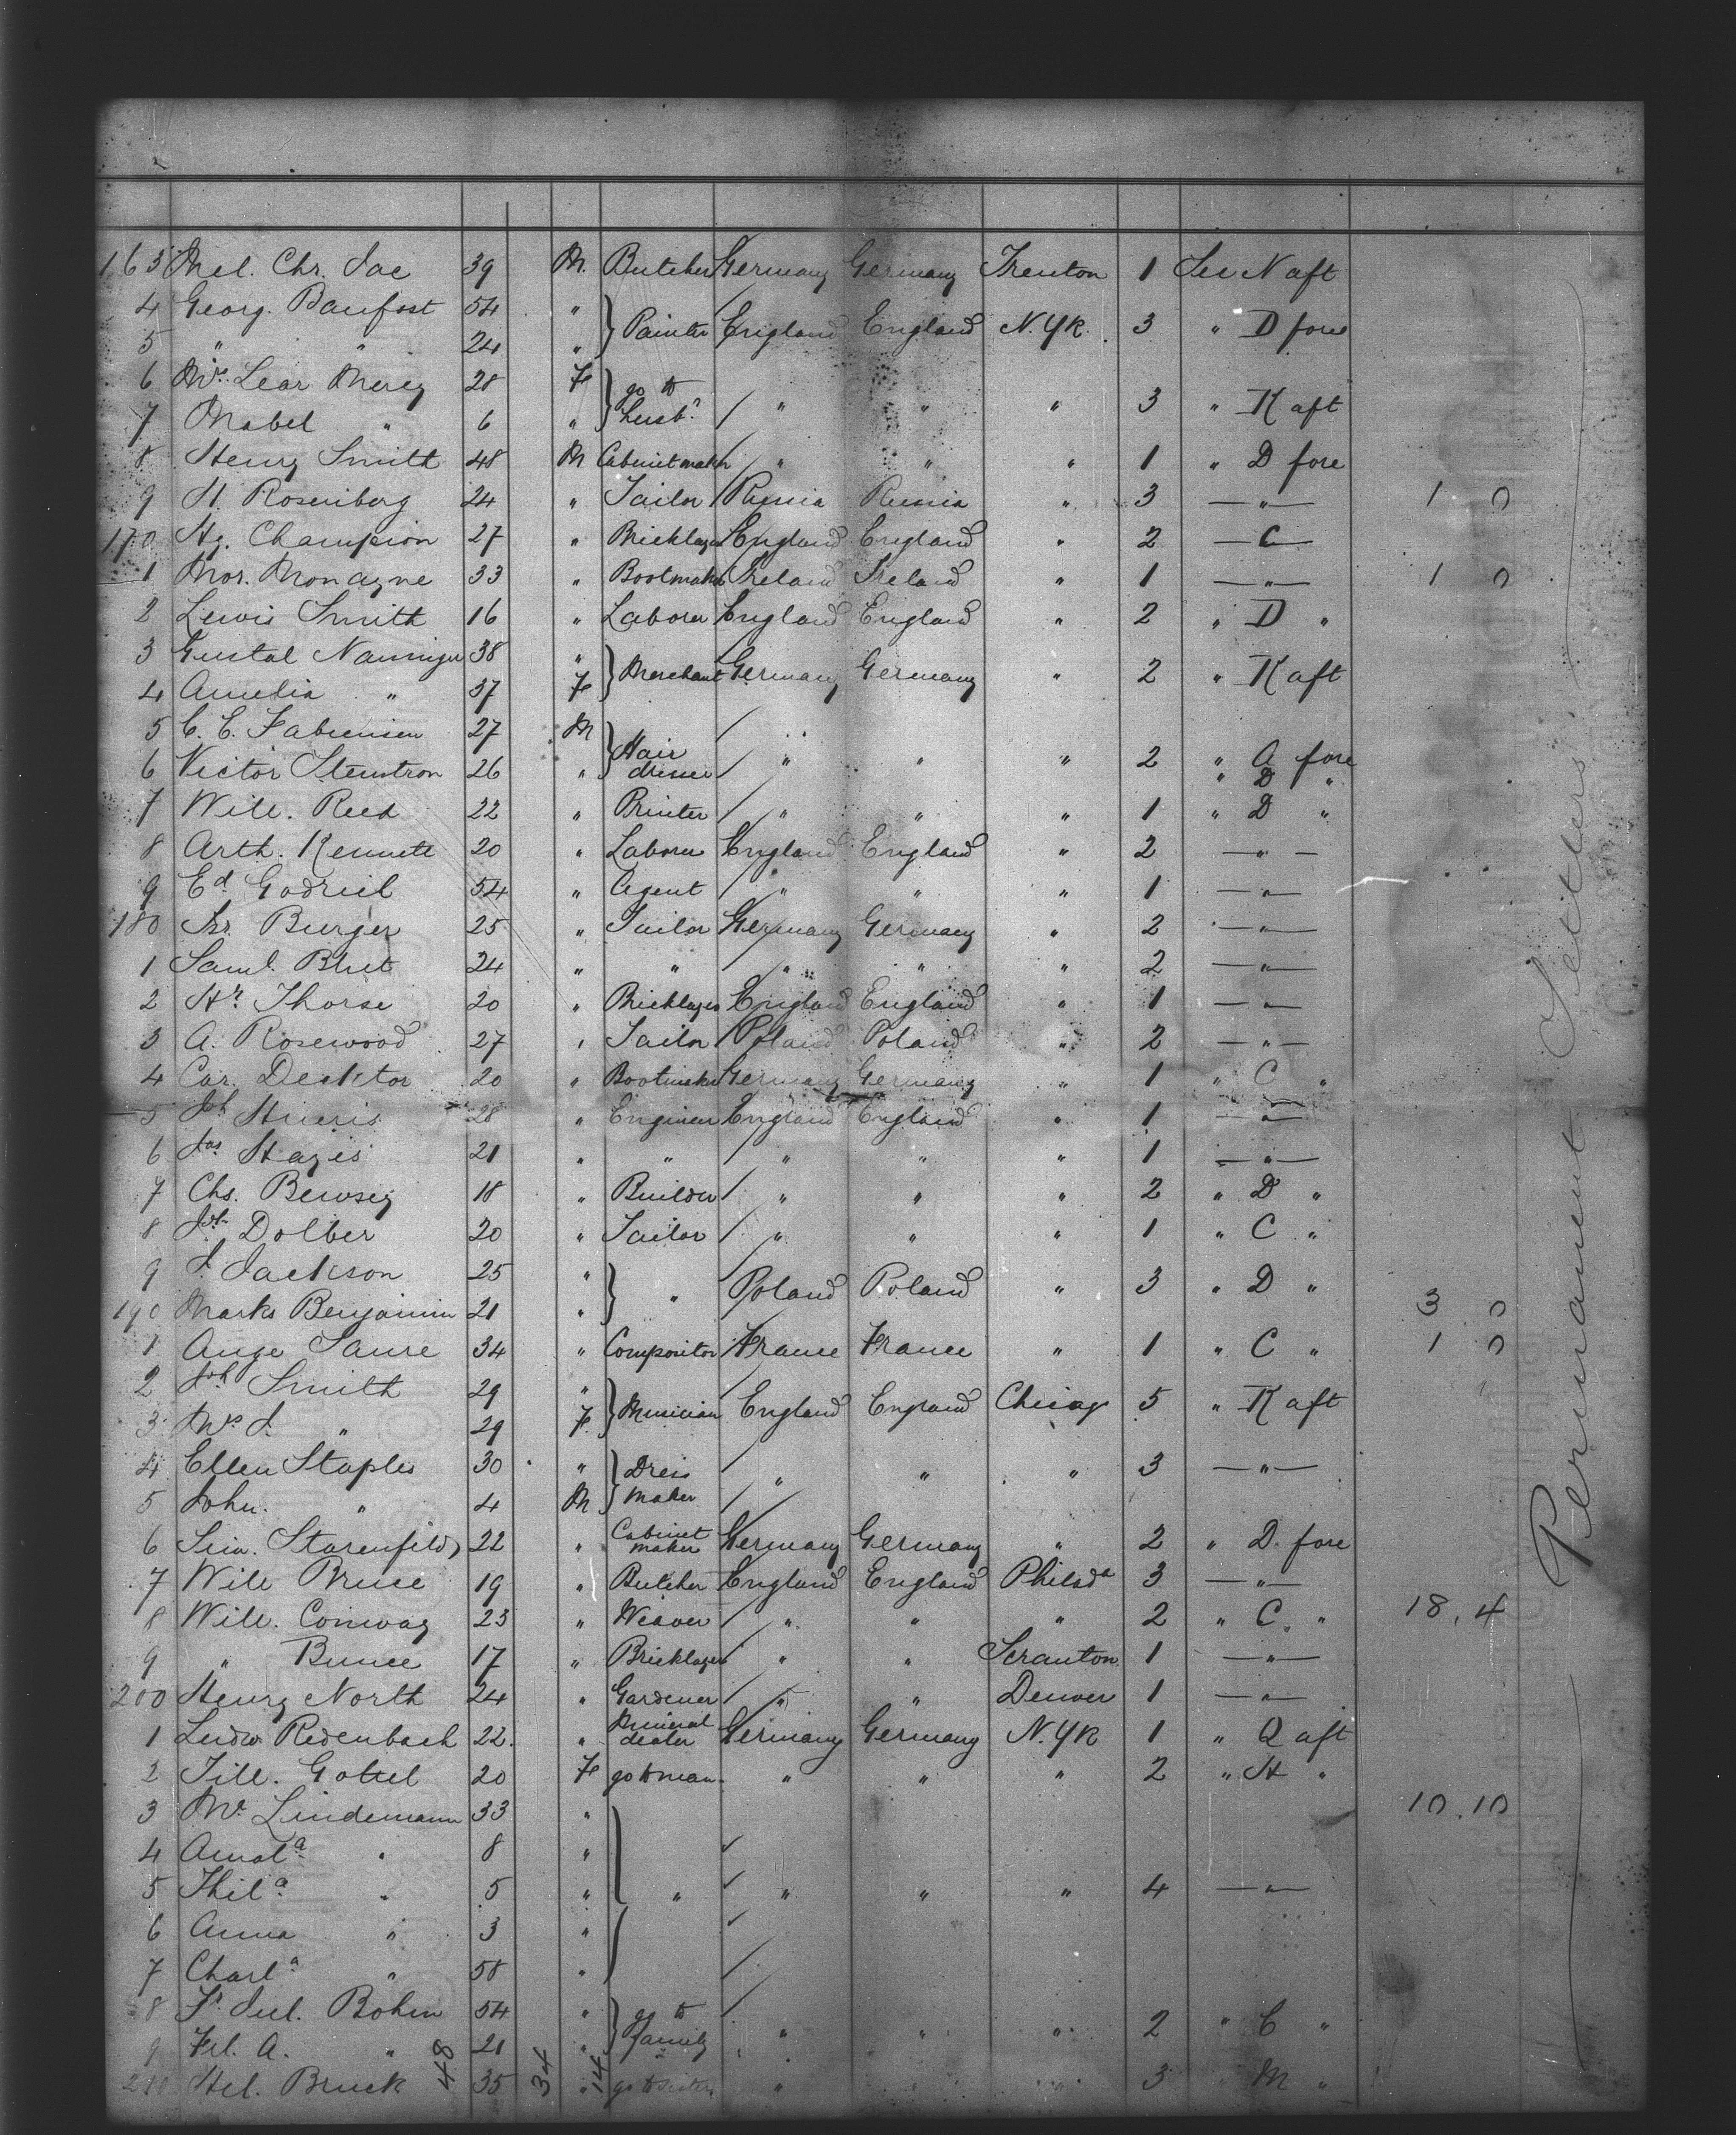 163 Mel. Chr. Jac 39 M. Butcher Germany Germany Trenton 1 See N aft
4 Georg. Banfost 54 "
} Painter England England N.Yk. 3 " D fore
5 " " 24 "
6 Mrs. Lear Mercy 28 F
} go to husb. " " " 3 " K aft
7 Mabel " 6 "
8 Henry Smith 48 M Cabinetmaker " " " 1 " D fore
9 H. Rosenberg 24 " Tailor Russia Russia " 3 — " — 1 0
170 Hy. Champion 27 " Bricklayer England England " 2 — C —
1 Mor. Monagne 33 " Bootmaker Ireland Ireland " 1 — " — 1 0
2 Lewis Smith 16 " Laborer England England " 2 " D "
3 Gustal Nanninger 38 "
} Merchant Germany Germany " 2 " K aft
4 Amelia " 37 F
5 C. C. Fabiensen 27 M
} Hair dresser " " " 2 " A fore
6 Victor Stenstron 26 " " D "
7 Will. Reed 22 " Printer " " " 1 " D "
8 Arth. Kennett 20 " Laborer England England " 2 — " —
9 Ed Godriel 54 " Agent " " " 1 — " —
180 Fr. Burger 25 " Tailor Germany Germany " 2 — " —
1 Saml. Blut 24 " " " " " 2 — " —
2 Hy Thorse 20 " Bricklayer England England " 1 — " —
3 A. Rosewood 27 " Tailor Poland Poland " 2 — " —
4 Car. Desktor 20 " Bootmaker Germany Germany " 1 " C "
5 28 " Engineer England England " 1 — " —
6 Jas Hayes 21 " " " " " 1 — " —
7 Chs. Bewsey 18 " Builder " " " 2 " D "
8 Jos. Dolber 20 " Tailor " " " 1 " C "
9 J. Jackson 25 "
} " Poland Poland " 3 " D "
190 Marks Benjamin 21 " 3 0
1 Auge Saure 34 " Compositor France France " 1 " C " 1 0
2 Joh Smith 29 "
} Musician England England Chicago 5 " K aft
3 Mrs J. " 29 F.
4 Ellen Staples 30 " } Dress " " " 3 — " —
5 John. " 4 M maker
6 Sim. Starenfild 22 " Cabinet maker Germany Germany " 2 " D. fore
7 Will Bruce 19 " Butcher England England Philada 3 — " —
8 Will. Conway 23 " Weaver " " " 2 " C. " 18.4
9 " Bunce 17 " Bricklayer " " Scranton 1 — " —
200 Henry North 24 " Gardener " " Denver 1 — " —
1 Ludw. Redenbach 22. " Mineral dealer Germany Germany N.Yk 1 " Q aft
2 Till. Gottel 20 F go to man " " " 2 " H "
3 Mrs Lindemann 33 " 10.10
4 Amala " 8 "
5 Thila " 5 " " " " " 4 — " —
6 Anna " 3 "
7 Charla " 58 "
8 Fr. Jul. Bohm 54 "
} go to Family " " " 2 " C "
9 Frl. A. " 21 "
210 Hel. Bruck 35 " go to sister " " " 3 " M "
48 34 14
Permanent Settlers